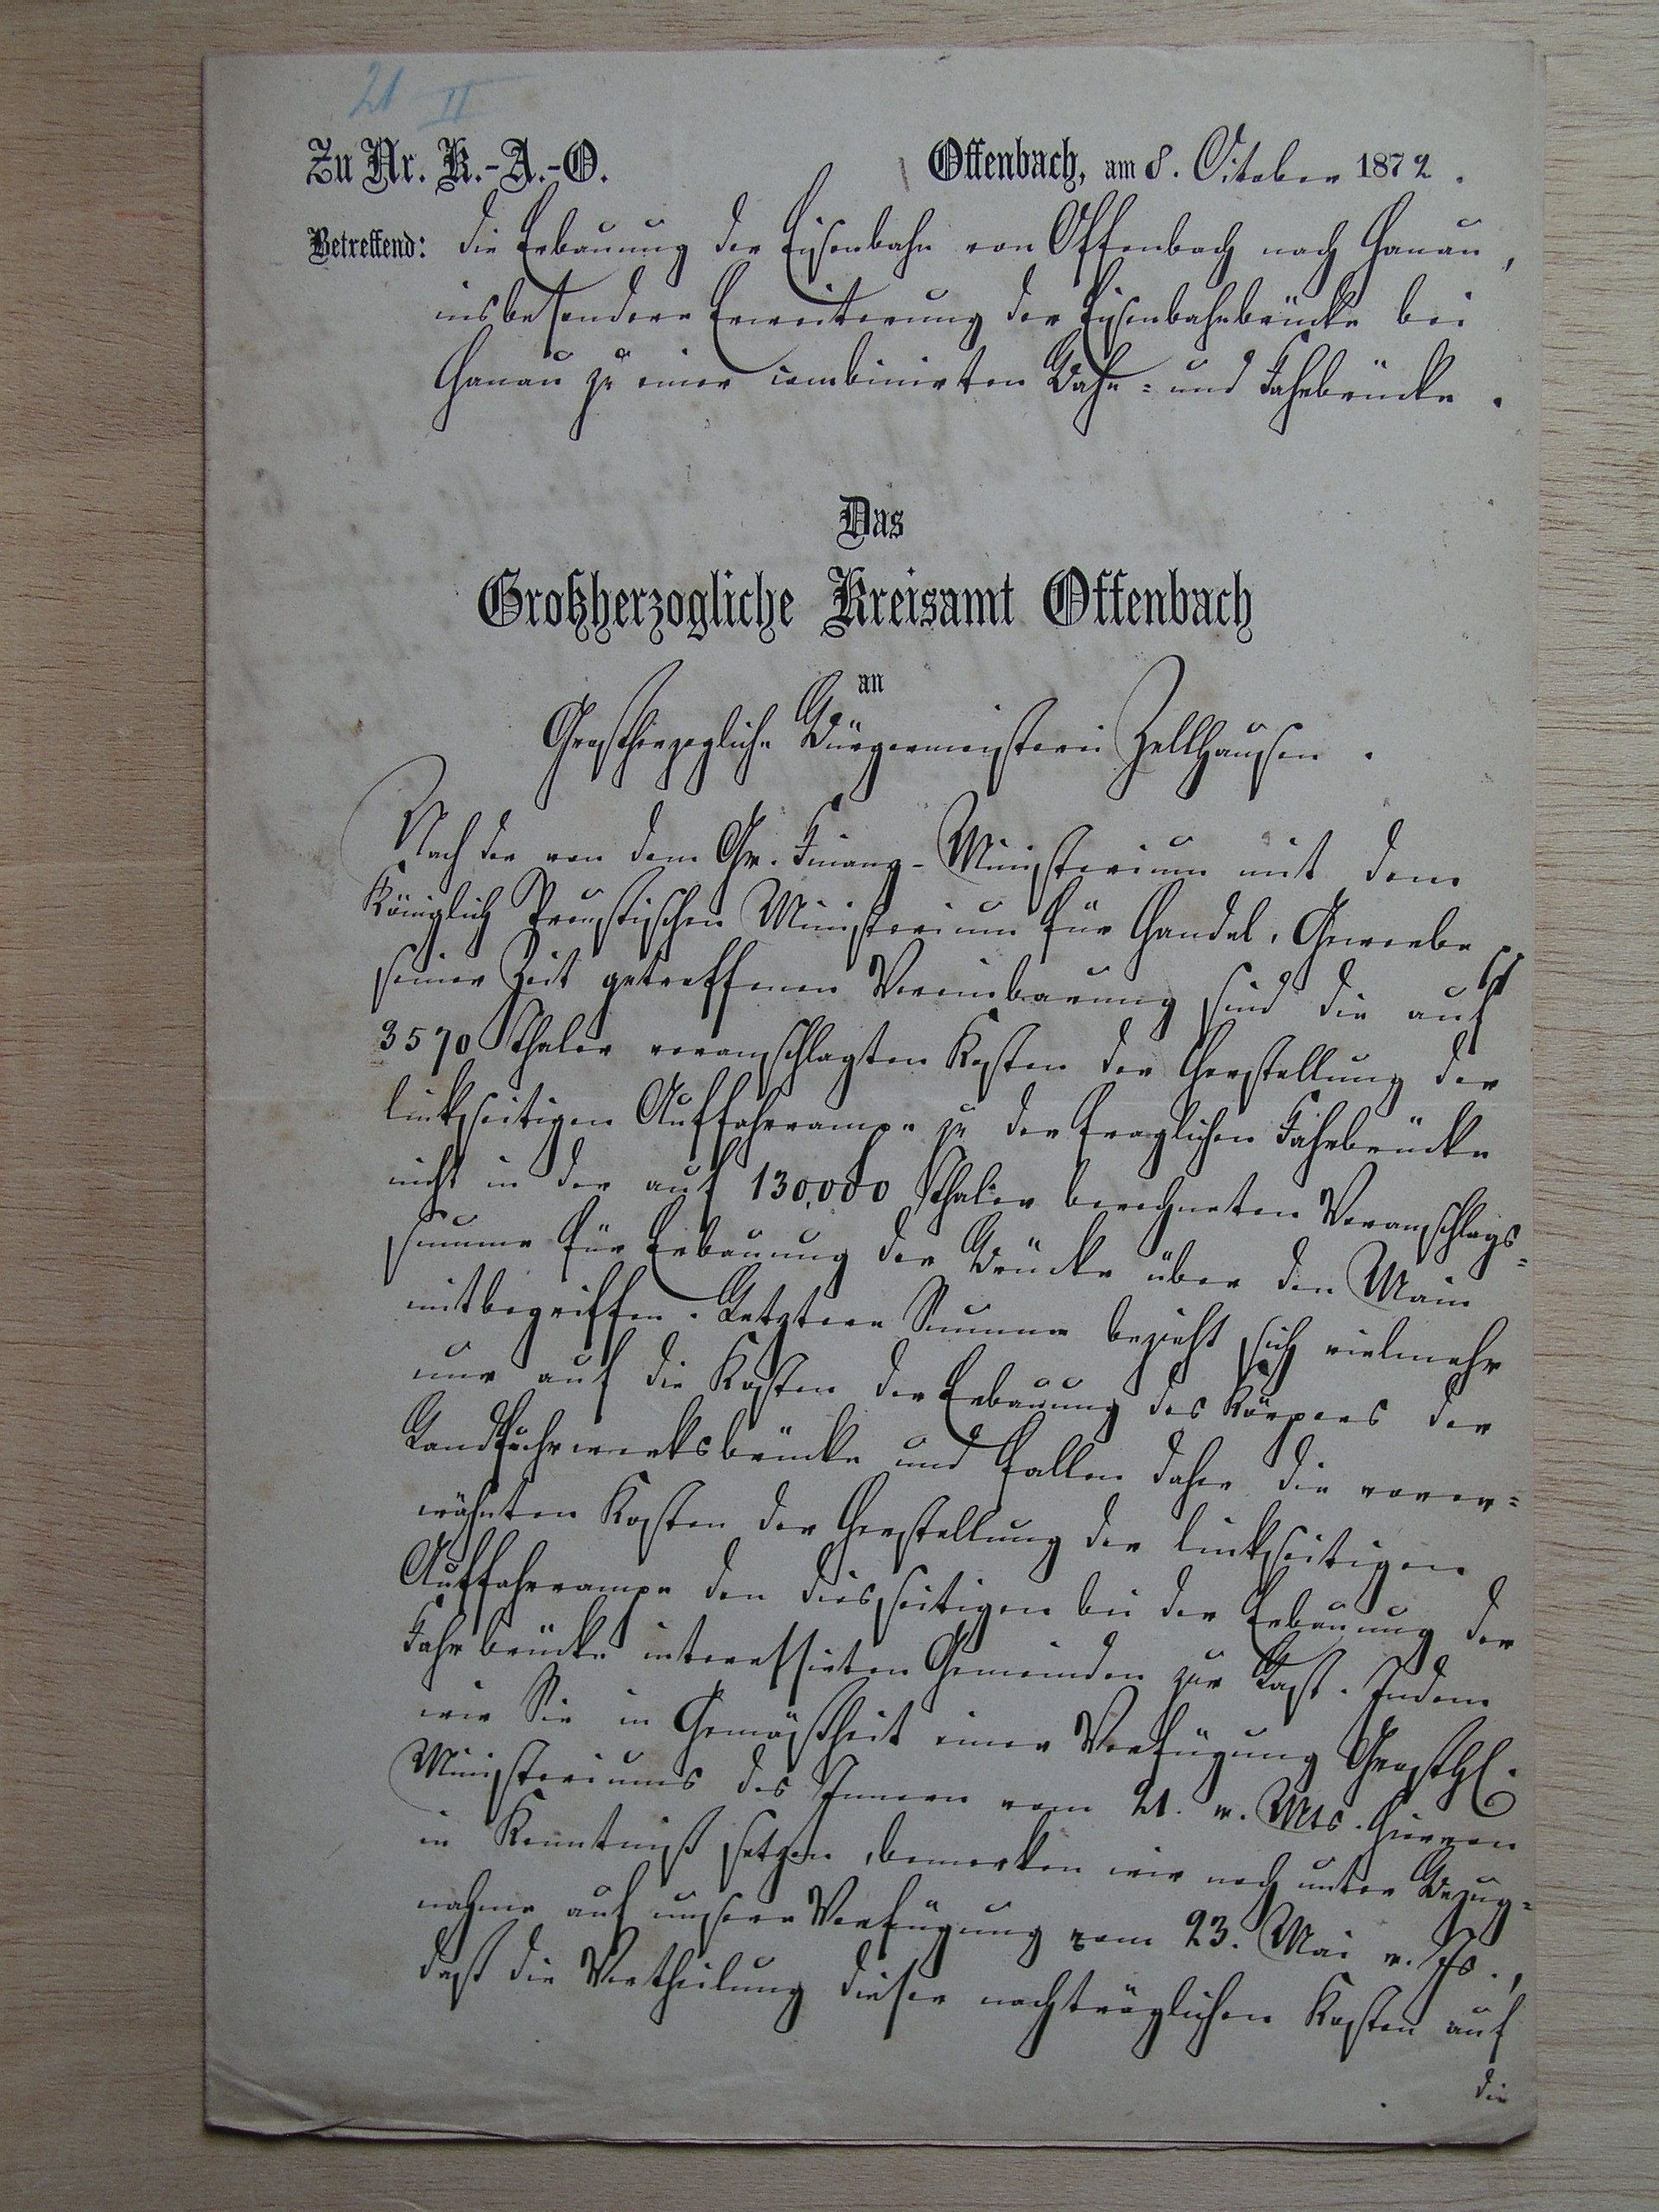 21 II
Zu Nr. K.-A.-O.
Offenbach, am 8. October 1872.
Betreffend: die Erbauung der Eisenbahn von Offenbach nach Hanau,
insbesondere Erweiterung der Eisenbahnbrücke bei
Hanau zu einer combinirten Bahn- und Fahrbrücke.
Das
Großherzogliche Kreisamt Offenbach
an
Großherzogliche Bürgermeisterei Zellhausen.
Nach der von dem Gr. Finanz-Ministerium mit dem
Königlich Preußischen Ministerium für Handel, Gewerbe pp
seiner Zeit getroffenen Vereinbarung sind die auf
3570 Thaler veranschlagten Kosten der Herstellung der
linkseitigen Auffahrrampe zu der fraglichen Fahrbrücke
nicht in der auf 130,000 Thaler berechneten Voranschlags=
summe für Erbauung der Brücke über den Main
mitbegriffen. Letztere Summe bezieht sich vielmehr
nur auf die Kosten der Erbauung des Körpers der
Landfuhrwerksbrücke und fallen daher die vorer=
wähnten Kosten der Herstellung der linkseitigen
Auffahrrampe den diesseitigen bei der Erbauung der
Fahrbrücke interessirten Gemeinden zur Last. Indem
wir Sie in Gemäßheit einer Verfügung Großhl.
Ministeriums des Innern vom 21. v. Mts. hiervon
in Kenntniß setzen, bemerken wir noch unter Bezug=
nahme auf unsere Verfügung vom 23. Mai v. Js.,
daß die Vertheilung dieser nachträglichen Kosten auf
die